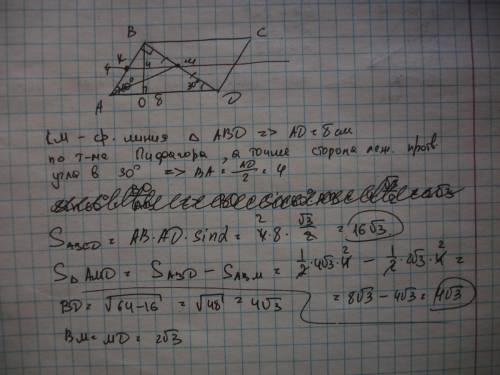 B
C
K
4
4
M
60°
30°
A
O
8
D
KM - ср. линия Δ ABD => AD = 8 см
по т-ма Пифагора, а точнее сторона леж. против
угла в 30° => BA = AD/2 = 4
S_ABCD = AB · AD · sin d = 4 · 8 · √3/2 = 16√3
S_ΔAMD = S_ABD - S_ABM = 1/2 · 4√3 · 4 - 1/2 · 2√3 · 4 =
BD = √64-16 = √48 = 4√3
= 8√3 - 4√3 = 4√3
BM = MD = 2√3